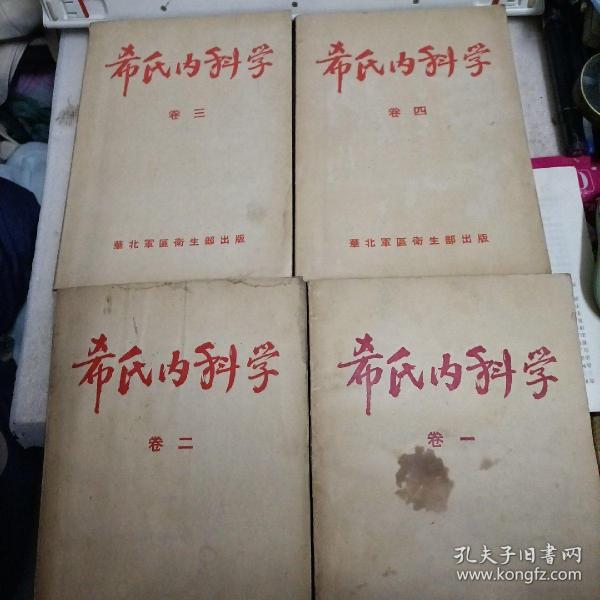 希氏内科学
卷三
華北軍區衛生部出版
希氏内科学
卷四
華北軍區衛生部出版
希氏内科学
卷二
希氏内科学
卷一
孔夫子旧书网
www.kongfz.com